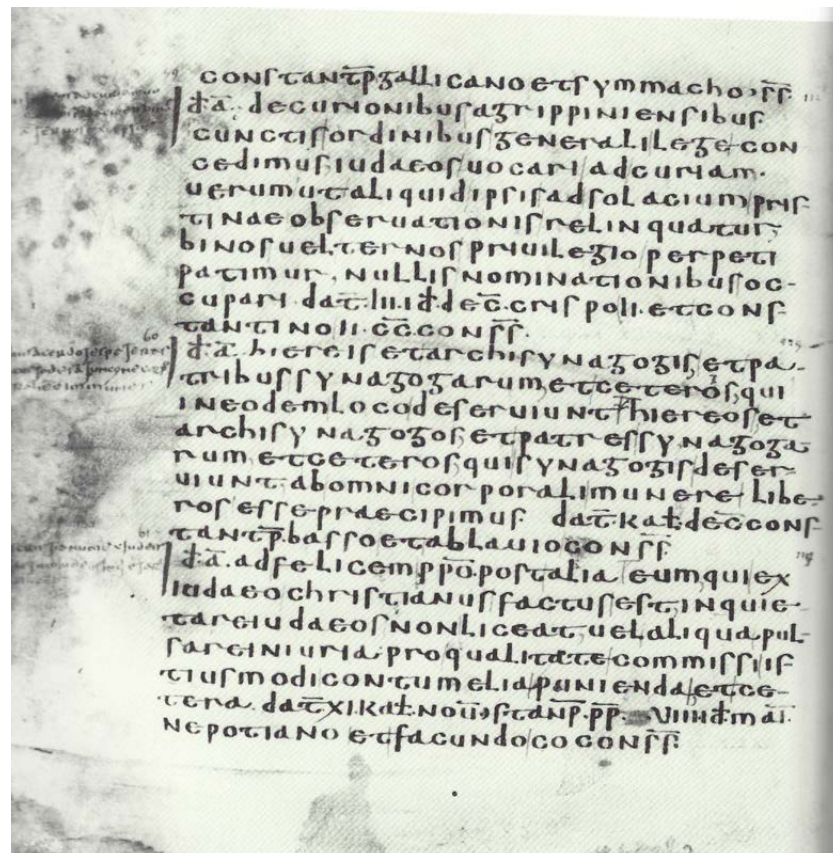 CONSTANTP GALLICANO ET SYMMACHO SS
ID A DECURIONIBUS AGRIPPINIENSIBUS
CUNCTIS ORDINIBUS GENERALI LEGE CON
CEDIMUS IUDAEOS UOCARI AD CURIAM
UERUM UT ALIQUID IPSIS AD SOLACIUM PRIS
TINAE OBSERUATIONIS RELINQUATUR
BINOS UEL TERNOS PRIUILEGIO PERPETI
PATIMUR NULLIS NOMINATIONIBUS OC
CUPARI DAT III ID DEC CRISPO II ET CONS
TANTINO II CC CONSS
ID A HIEREIS ET ARCHISYNAGOGIS ET PA
TRIBUS SYNAGOGARUM ET CETEROS QUI
IN EODEM LOCO DESERUIUNT HIEREOS ET
ARCHISYNAGOGOS ET PATRES SYNAGOGA
RUM ET CETEROS QUI SYNAGOGIS DESER
UIUNT AB OMNI CORPORALI MUNERE LIBE
ROS ESSE PRAECIPIMUS DAT KAL DEC CONS
TANTP BASSO ET ABLAUIO CONSS
ID A AD FELICEM PPO POST ALIA EUM QUI EX
IUDAEO CHRISTIANUS FACTUS EST INQUIE
TARE IUDAEOS NON LICEAT UEL ALIQUA PUL
SARE INIURIA PRO QUALITATE COMMISSI IS
TIUSMODI CONTUMELIA PUNIENDA ET CE
TERA DAT XI KAL NOU STANP PP VIII ID MAI
NEPOTIANO ET FACUNDO CO CONSS